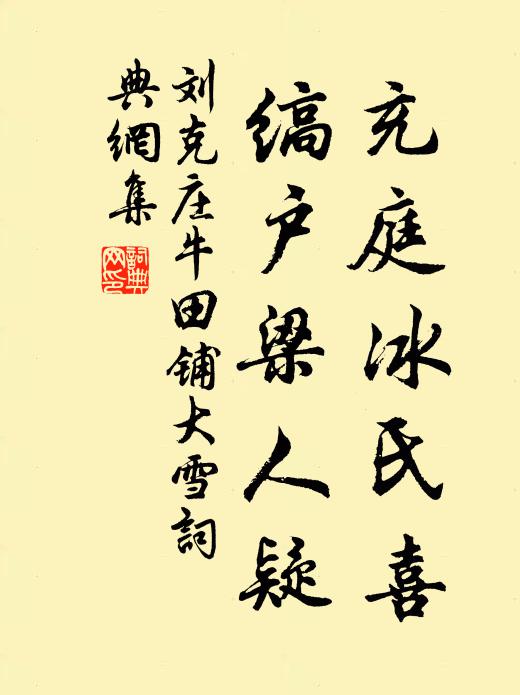 充庭冰氏喜
缟户梁人疑
刘克庄牛田铺大雪詞
典網集
詞典
网印